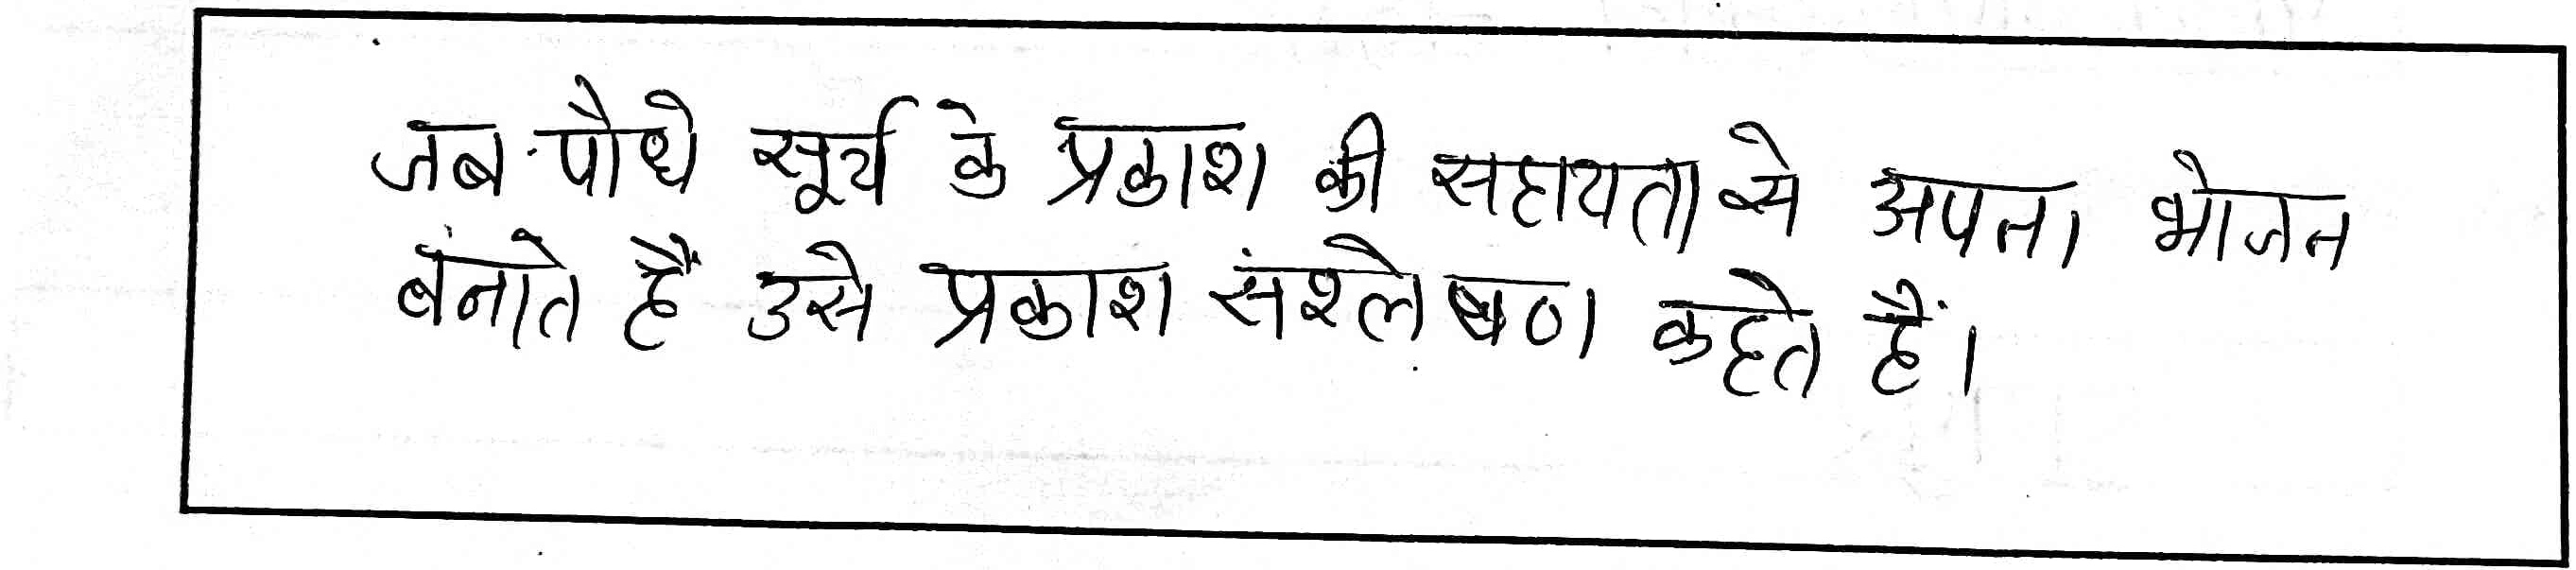 जब पौधे सूर्य के प्रकाश की सहायता से अपना भोजन
बनाते हैं उसे प्रकाश संश्लेषण कहते हैं।